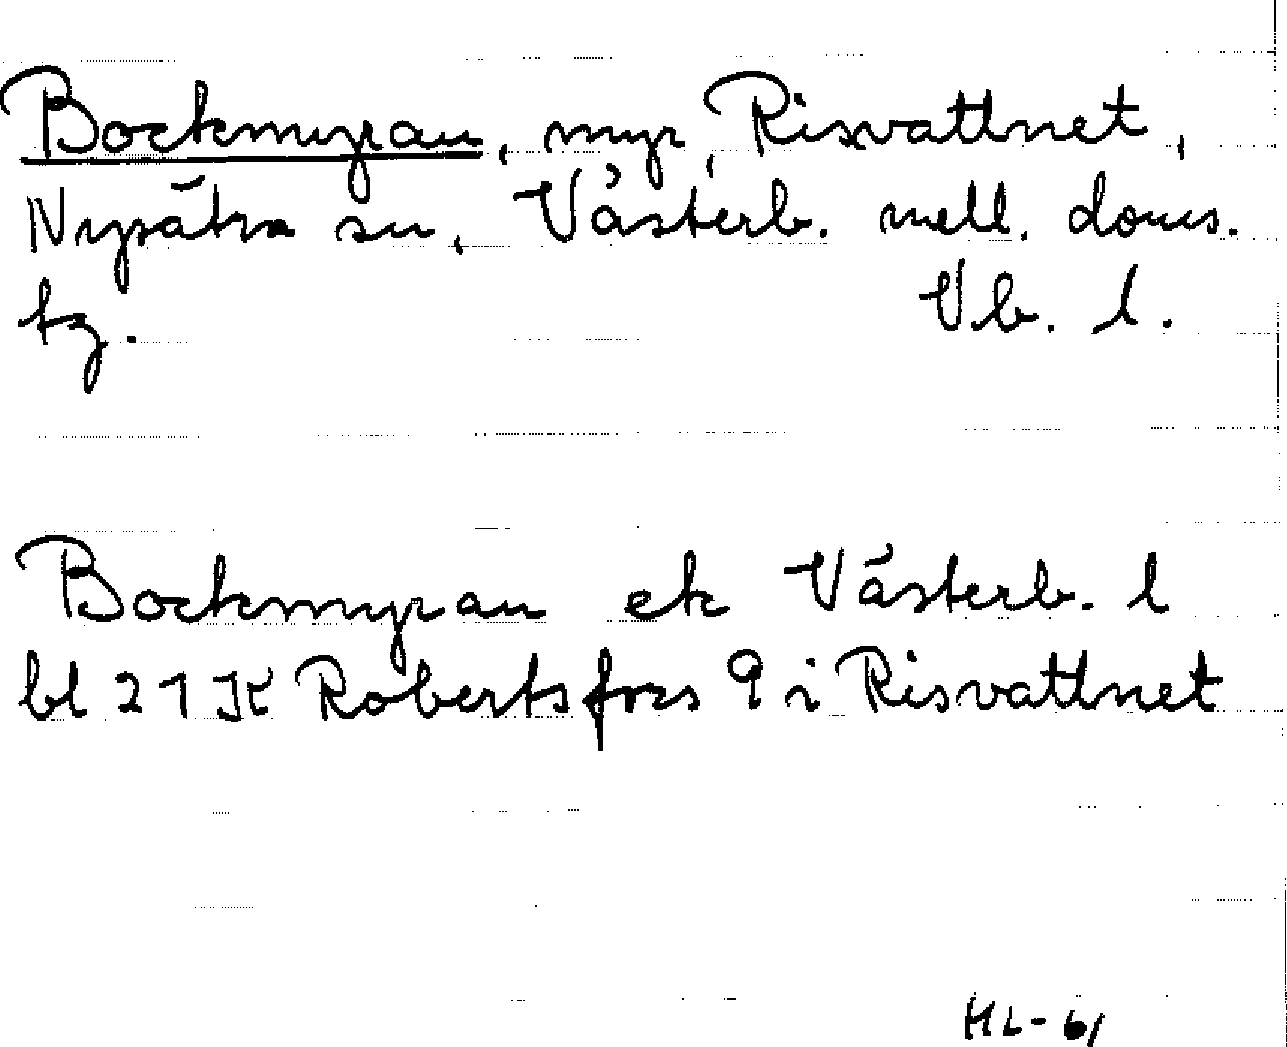 Bockmyran, myr, Risvattnet,
Nysätra sn, Västerb. mell. doms.
tg. Vb. l.
Bockmyran ek Västerb. l
bl 21 JK Robertsfors 9 i Risvattnet
HL-61